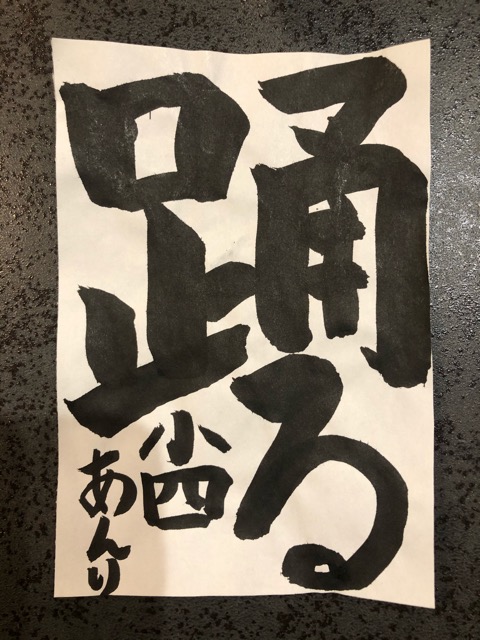 踊る
小四
あんり